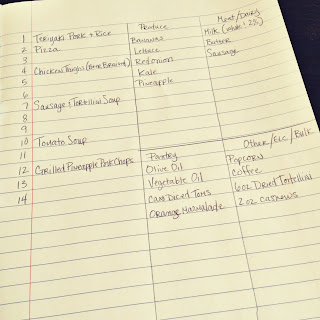 Produce
Meat/Dairy
1 Teriyaki Pork + Rice
Bananas
Milk (whole + 2%)
2 Pizza
Lettuce
Butter
3
Red onion
Sausage
4 Chicken Thighs
Kale
5
Pineapple
6
7 Sausage + Tortellini Soup
8
9
10 Tomato Soup
11
Pantry
Other/Etc/Bulk
12 Grilled Pineapple Pork Chops
Olive Oil
Popcorn
13
Vegetable Oil
Coffee
14
Can Diced Toms
6oz Dried Tortellini
Orange Marmalade
2oz cashews